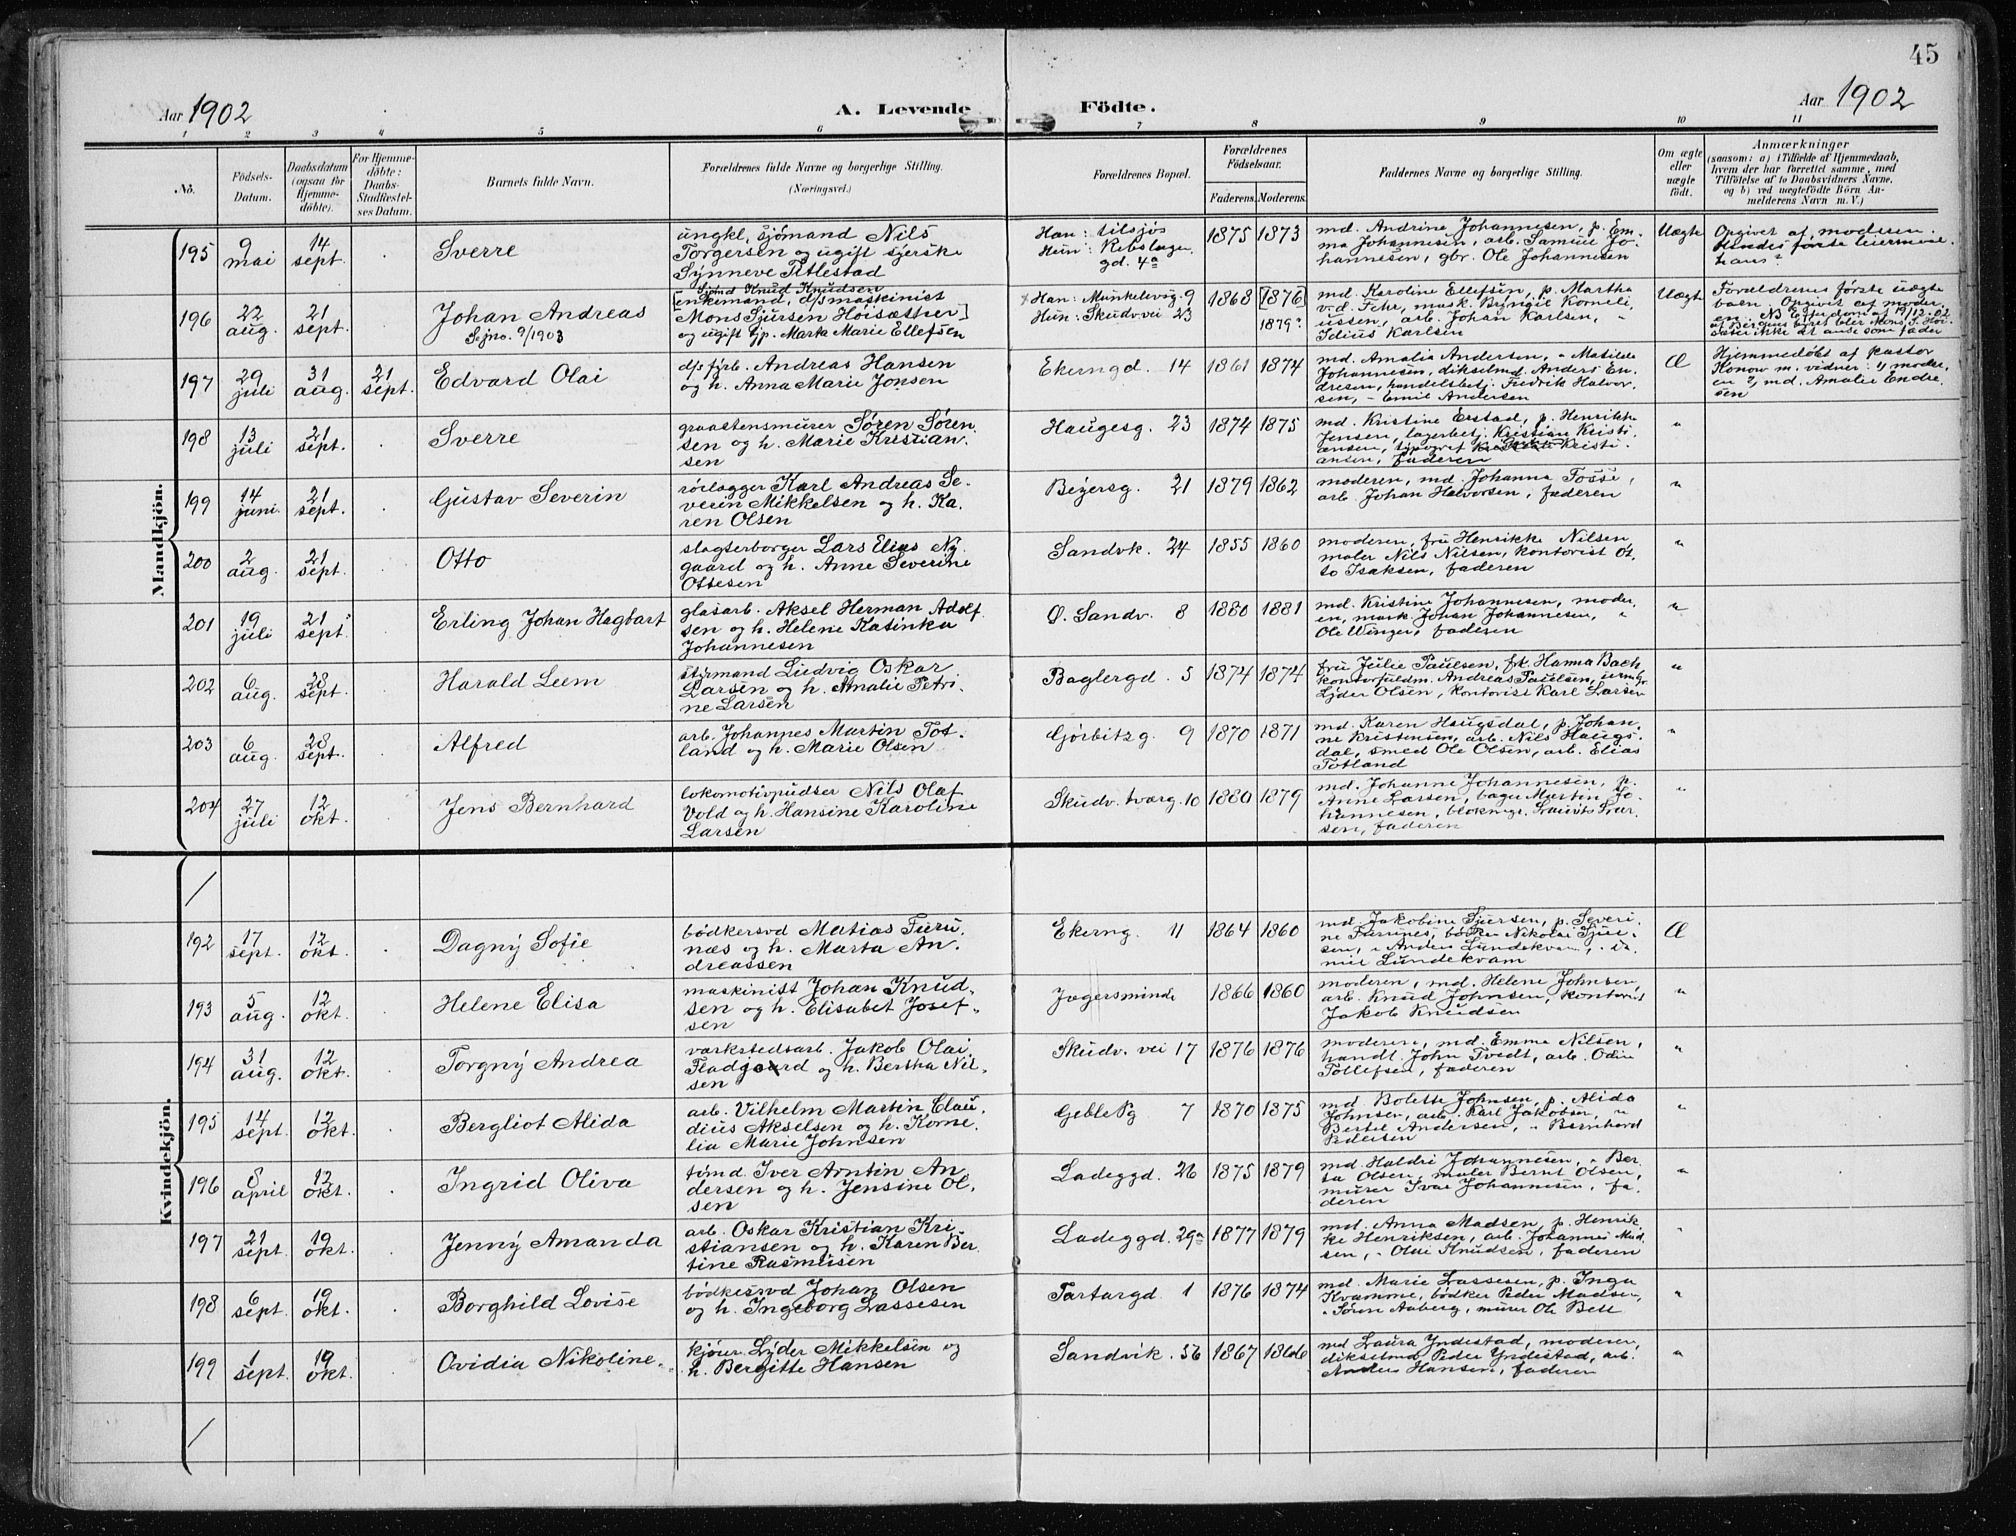 45
Aar 1902
A. Levende Födte.
Aar 1902
1 2 3 4 5 6 7 8 9 10 11
No.
Födsels-Datum.
Daabsdatum (ogsaa for Hjemme-döbte).
For Hjemme-döbte: Daabs-Stadfæstel-ses Datum.
Barnets fulde Navn.
Forældrenes fulde Navne og borgerlige Stilling.
(Næringsvei.)
Forældrenes Bopæl.
Forældrenes Födselsaar.
Faderens. Moderens.
Faddernes Navne og borgerlige Stilling.
Om ægte eller uægte födt.
Anmærkninger
(saasom: a) i Tilfælde af Hjemmedaab,
hvem der har forrettet samme, med
Tilföielse af to Daabsvidners Navne,
og b) ved uægtefödte Börn An-
melderens Navn m. V.)
Mandkjön.
195 9 mai 14 sept. Sverre
ungkl. sjömand Nils
Torgersen og ugift syerske
Synneve Titlestad
Han: tilsjøs
Hun: Rebslager
gd. 4a
1875 1873
md. Andrine Johannesen, p. Em-
ma Johannesen, arb. Samuel Jo-
hannesen, gbr. Ole Johannesen
Uægte
Opgivet af modsen.
Hendes første leiermaal
hans?
196 22 aug. 21 sept. Johan Andreas
Sejno. 9/1903
Sjømd Knud Knudsen
[enkemand, d/s maskinist
Mons Sjursen Høisæther]
og ugift tjp. Marta Marie Ellefsen
Han: Munkelvsig 9
Hun: Skudvvei 23
1868 [1876]
1879?
md. Karoline Ellefsen, p. Martha
v.d. Fehr, mask. Bryngil Korneli
ussen, arb. Johan Karlsen, "
Julius Karlsen
Uægte
Forældrenes første uægte
barn. Opgivet af moder
en.
197 29 juli 31 aug. 21 sept. Edvard Olai
d/s fyrb. Andreas Hansen
og h. Anna Marie Jonsen
Ekerngd. 14 1861 1874
md. Amalia Andersen, " Matilde
Johannesen, dikselmd Anders En
dresen, handelsbetj. Fredrik Halvor
sen, " Emil Andersen
Æ
Hjemmedøbt af pastor
Konow m. vidner: 1) moder
en 2) md. Amalie Endre
sen
198 13 juli 21 sept. Sverre
graastensmurer Søren Søren
sen og h. Marie Kristian.
sen
Haugesg. 23 1874 1875
md. Kristine Erstad, p. Henrikke
Jensen, lagerbetj. Kristian Kristi
ansen, typograf Kristi
ansen, faderen
"
199 14 juni. 21 sept. Gustav Severin
rørlægger Karl Andreas Se
verin Mikkelsen og h. Ka.
ren Olsen
Beyersg. 21 1879 1862
moderen, md. Johanna Fosse,
arb. Johan Halvorsen, faderen
"
200 2 aug. 21 sept. Otto
slagterborger Lars Elias Ny
gaard og h. Anne Severine
Ottesen
Sandvk. 24 1855 1860
moderen, fru Henrikke Nilsen
maler Nils Nilsen, kontorist Ot
to Isaksen, faderen
"
201 19 juli 21 sept. Erling Johan Hagbart
glasarb. Aksel Herman Adolf
sen og h. Helene Katinka
Johannesen
Ø. Sandv. 8 1880 1881
md. Kristine Johannesen, moder,
en, mask. Johan Johannesen, "
Ole Winger, faderen
"
202 6 aug. 28 sept. Harald Leem
styrmand Ludvig Oskar
Larsen og h. Amalie Petri-
ne Larsen
Baglergd. 5 1874 1874
fru Julie Paulsen, frk. Hanna Bach
kontorfuldm. Andreas Paulsen,
Lyder Olsen, kontorist Karl Larsen
"
203 6 aug. 28 sept. Alfred
arb. Johannes Martin Tot-
land og h. Marie Olsen
Gørbitzg. 9 1870 1871
md. Karen Haugsdal, p. Johan,
ne Kristensen, arb. Nils Haugs
dal, smed Ole Olsen, arb. Elias
Totland
"
204 27 juli 12 okt. Jens Bernhard
lokomotivpudser Nils Olaf
Vold og h. Hansine Karoline
Larsen
Skudv. tværg. 10 1880 1879
md. Johanne Johannesen, p.
Anne Larsen, bager Martin Jo
hannesen, Laurits Lar-
sen, faderen
"
Kvindekjön.
192 17 sept. 12 okt. Dagny Sofie
bødkersvd Matias Furu
næs og h. Marta An.
dreassen
Ekerng. 11 1864 1860
md. Jakobine Sjursen, p. Severi
ne Furunes, bødker Nikolai Sjur-
sen, " Anders Lundekvam,
Lundekvam
Æ
193 5 aug. 12 okt. Helene Elisa
maskinist Johan Knud,
sen og h. Elisabet Josef-
sen
Jægersminde 1866 1860
moderen, md. Helene Johnsen,
arb. Knud Johnsen, kontorist
Jakob Knudsen
"
194 31 aug. 12 okt. Torgny Andrea
værkstedsarb. Jakob Olai
Fladgaard og h. Bertha Nil-
sen
Skudv. vei 17 1876 1876
moderen, md. Emma Nilsen,
handl. John Tvedt, arb. Odin
Tollefsen, faderen
"
195 14 sept. 12 okt. Bergliot Alida
arb. Vilhelm Martin Clau
dius Akselsen og h. Korne
lia Marie Johnsen
Geble Pg 7 1870 1875
md. Bolette Johnsen, p. Alida
Johnsen, arb. Karl Jakobsen, "
Bertel Andersen, " Bernhard
Pedersen
"
196 8 april 12 okt. Ingrid Oliva
tønd. Iver Arntin An
dersen og h. Jensine Ol.
sen
Ladeggd. 26 1875 1879
md. Haldri Johannesen, " Ber
ta Olsen, maler Bernt Olsen,
murer Ivar Johannesen, fa.
deren
"
197 21 sept. 19 okt. Jenny Amanda
arb. Oskar Kristian Kri
stiansen og h. Karen Ber
tine Rasmusen
Ladeggd. 29a 1877 1879
md. Anna Madsen, p. Henrik
ke Henriksen, arb. Johannes Mad
sen, " Olai Knudsen, faderen
"
198 6 sept. 19 okt. Borghild Lovise
bødkersvd Johan Olsen
og h. Ingeborg Lassesen
Tartargd. 1 1876 1874
md. Marie Lassesen, p. Inga
Kvamme, bødker Peder Madsen,
" Søren Aaberg, murer Ole Bell
"
199 1 sept. 19 okt. Ovidia Nikoline
kjører Lyder Mikkelsen og
h. Bergitte Hansen
Sandvik. 56 1867 1866
md Laura Yndestad, moderen,
dikselmd Peder Yndestad, arb.
Anders Hansen, faderen
"